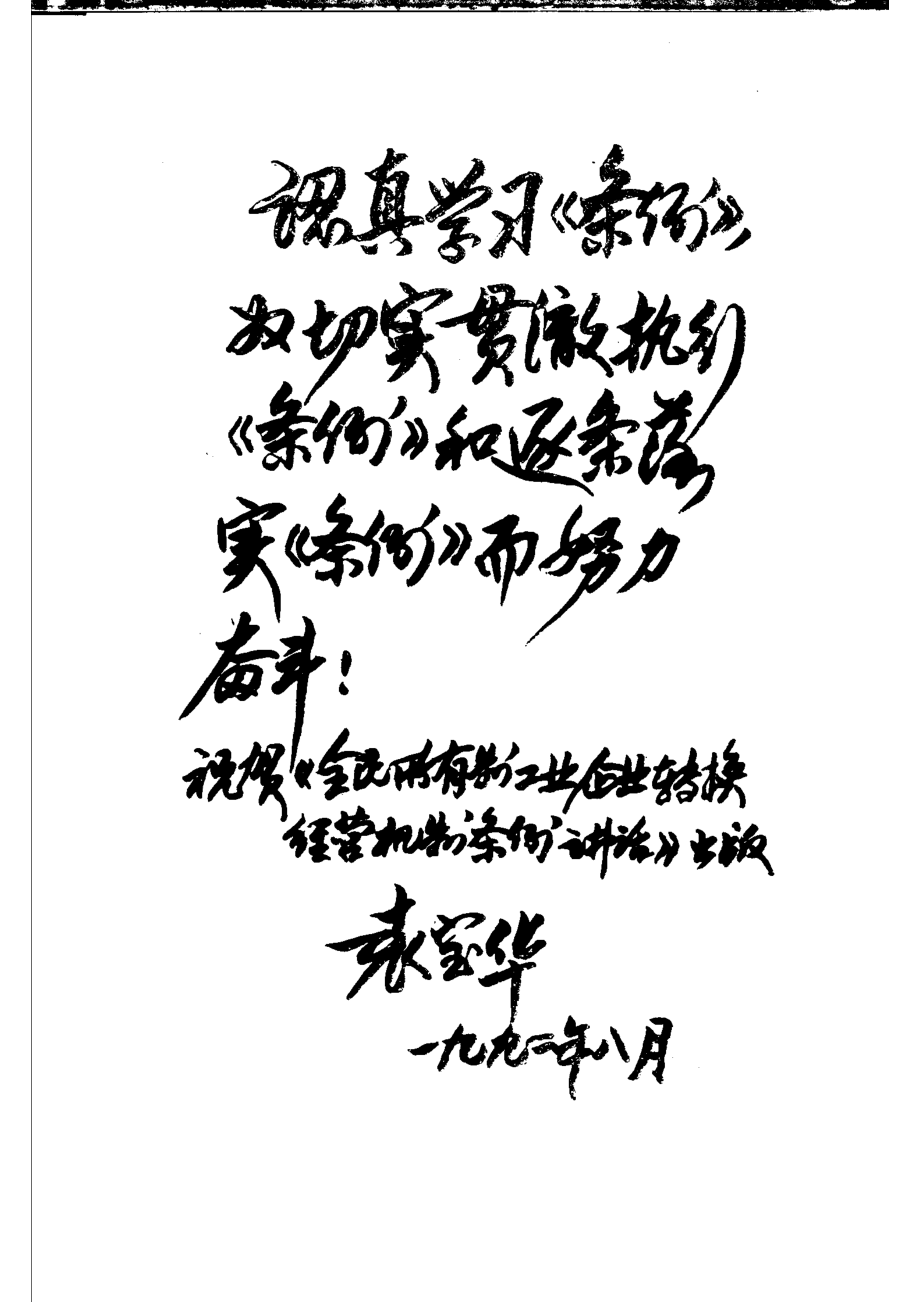 認真学习《条例》
为切实贯澈执行
《条例》和逐条落
实《条例》而努力
奋斗！
祝贺《全民所有制工业企业转换
经营机制条例讲话》出版
袁宝华
一九九二年八月